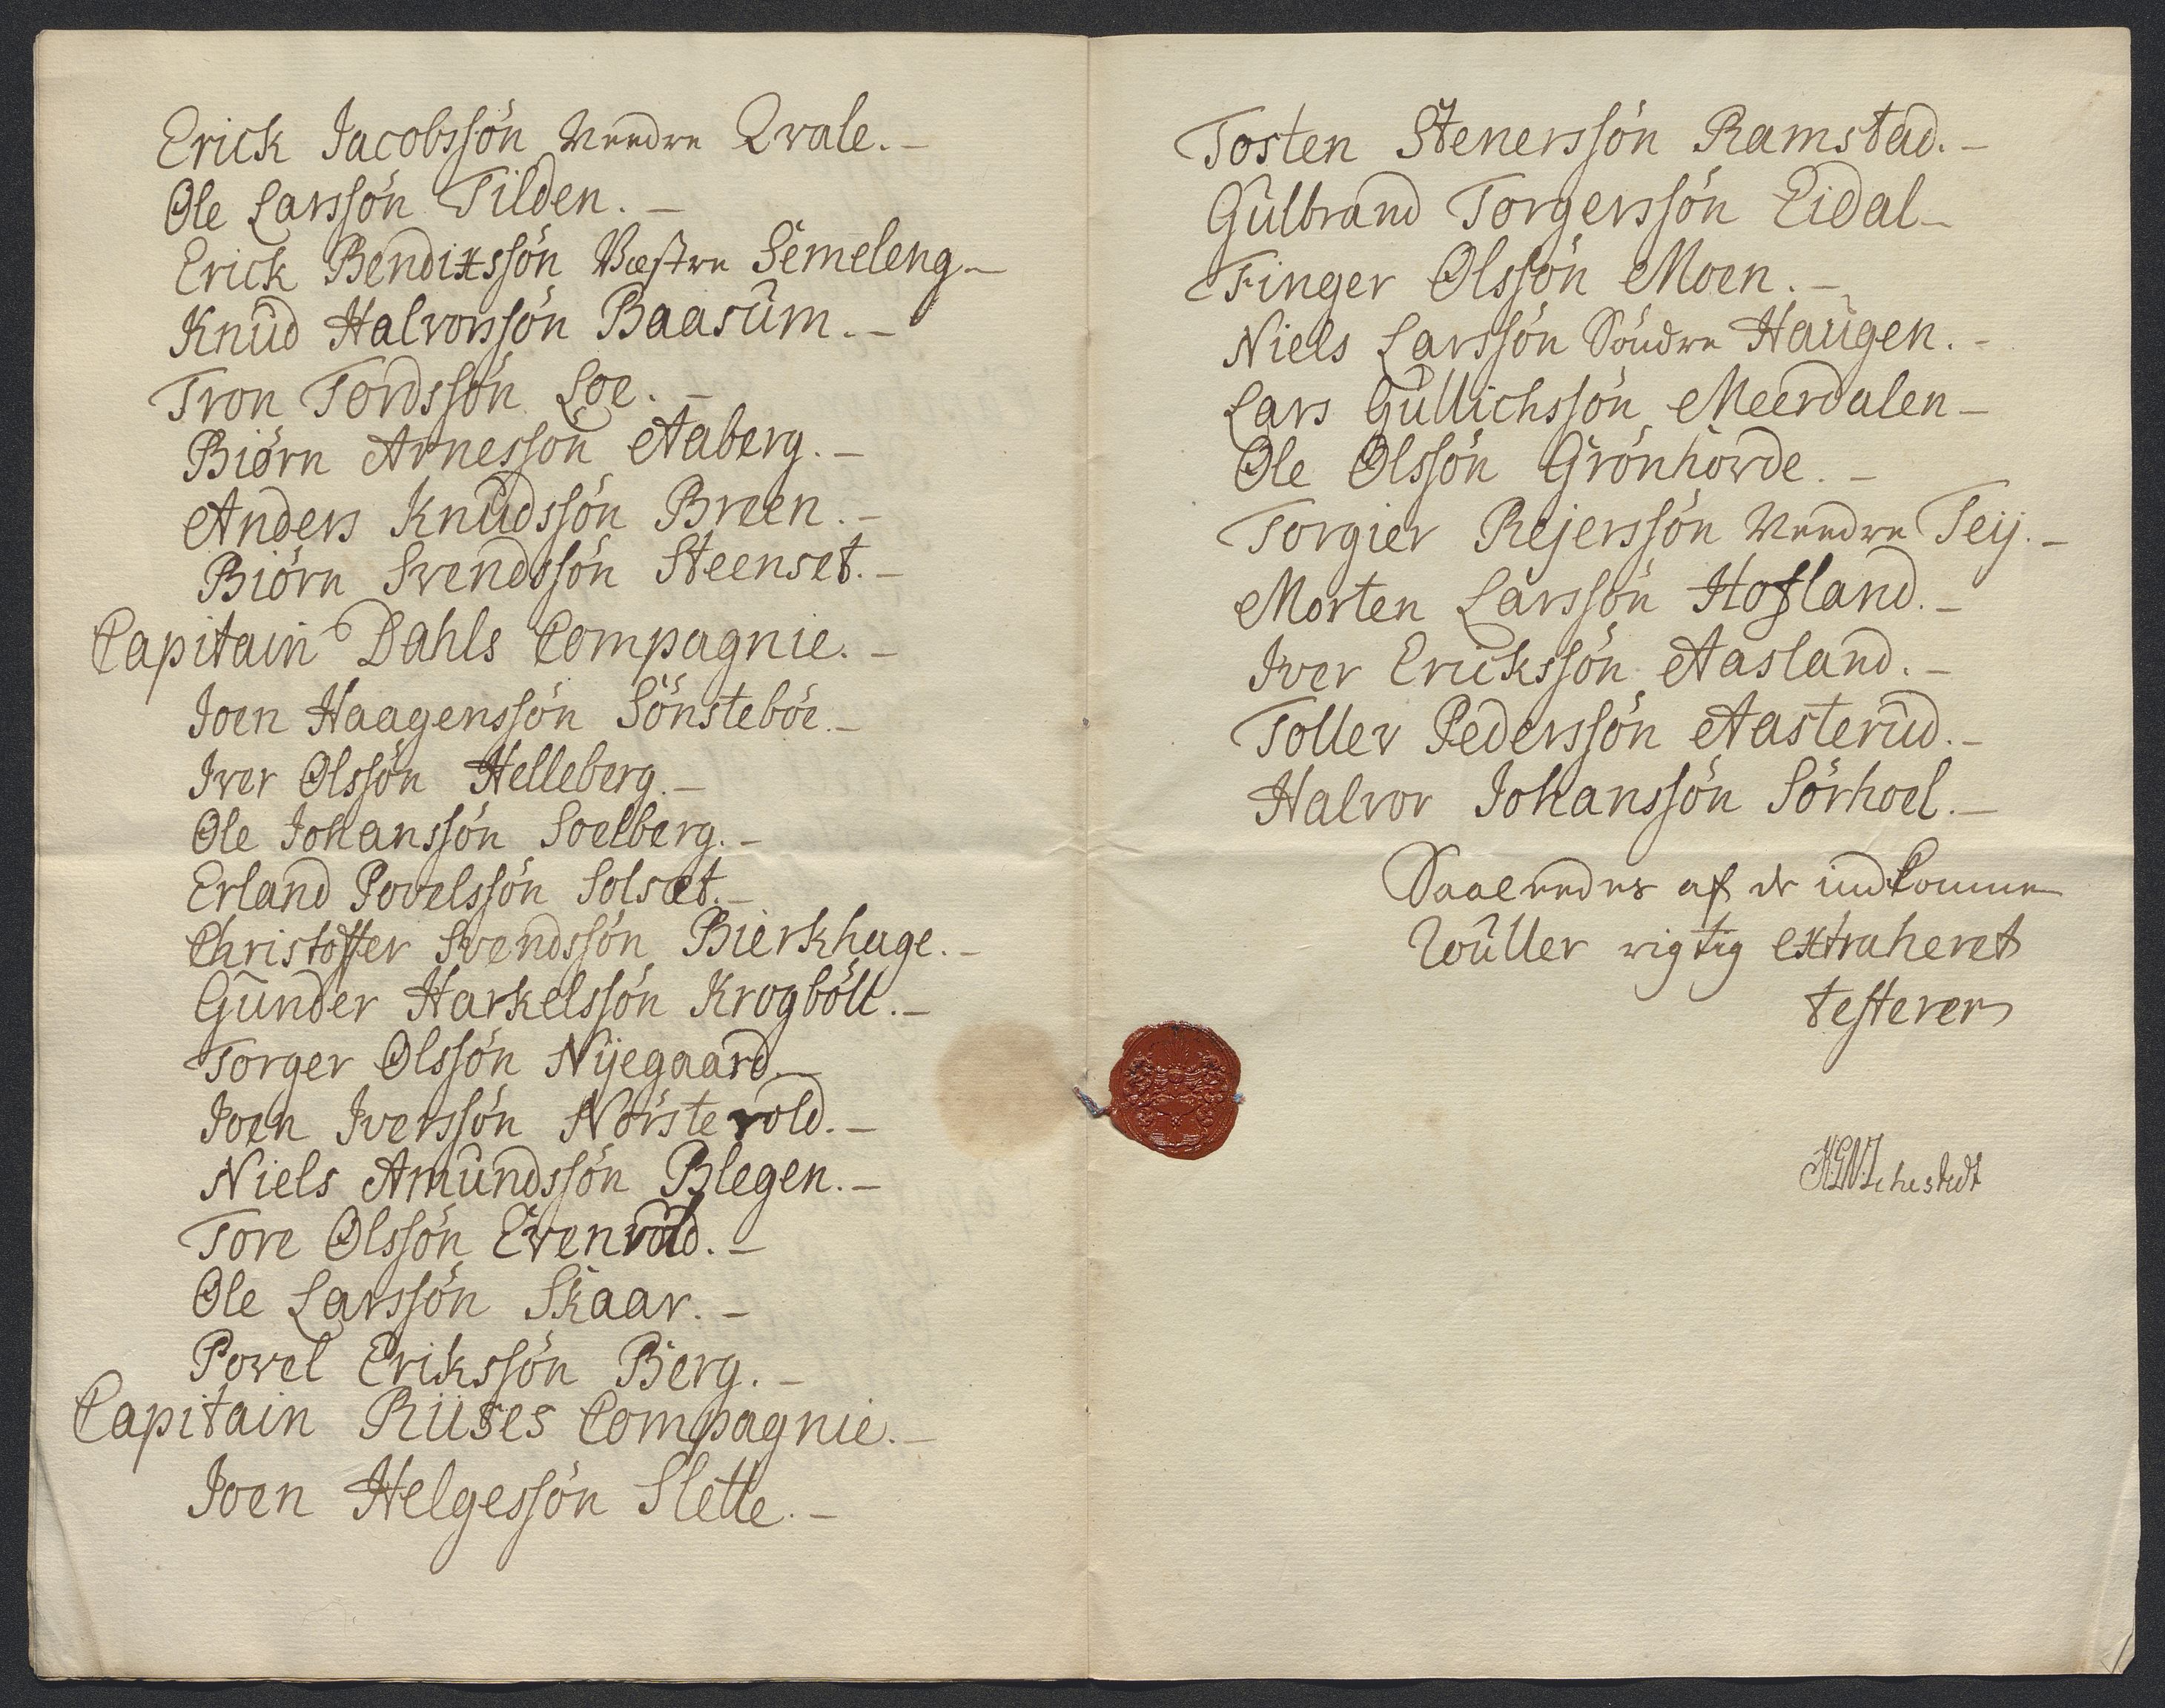 Erick Jacobssön Needre Qvale. -
Ole Larssön Tilden. -
Erick Bendixssön Væstre Semeleng -
Knud Halvorssön Baasum. -
Tron Tordssön Loe. -
Biörn Arnessön Aaberg. -
Anders Knudssön Breen. -
Biörn Svendssön Steenset. -
Capitain Dahls Compagnie. -
Joen Haagenssön Sönsteböe. -
Iver Olssön Helleberg. -
Ole Johanssön Soelberg. -
Erland Povelssön Solset. -
Christoffer Svendssön Bierkhage. -
Gunder Harkelssön Krogböll. -
Torger Olssön Nyegaard. -
Joen Iverssön Nörstevold. -
Niels Amundssön Blegen. -
Tore Olssön Evenvold. -
Ole Larssön Skaar. -
Povel Erikssön Berg. -
Capitain Riises Compagnie. -
Joen Helgessön Slette. -
Tosten Stenerssön Ramstad. -
Gulbrand Torgerssön Eidal -
Finger Olssön Moen. -
Niels Larssön Söndre Haugen. -
Lars Gullichssön Meerdalen -
Ole Olssön Grönhovde. -
Torgier Rejerssön Needre Teij. -
Morten Larssön Hofland. -
Iver Erickssön Aasland. -
Tollev Pederssön Aasterud. -
Halvor Johanssön Sörhoel. -
Saaleedes af de indkomne
Rouller rigtig extraheret
testerer